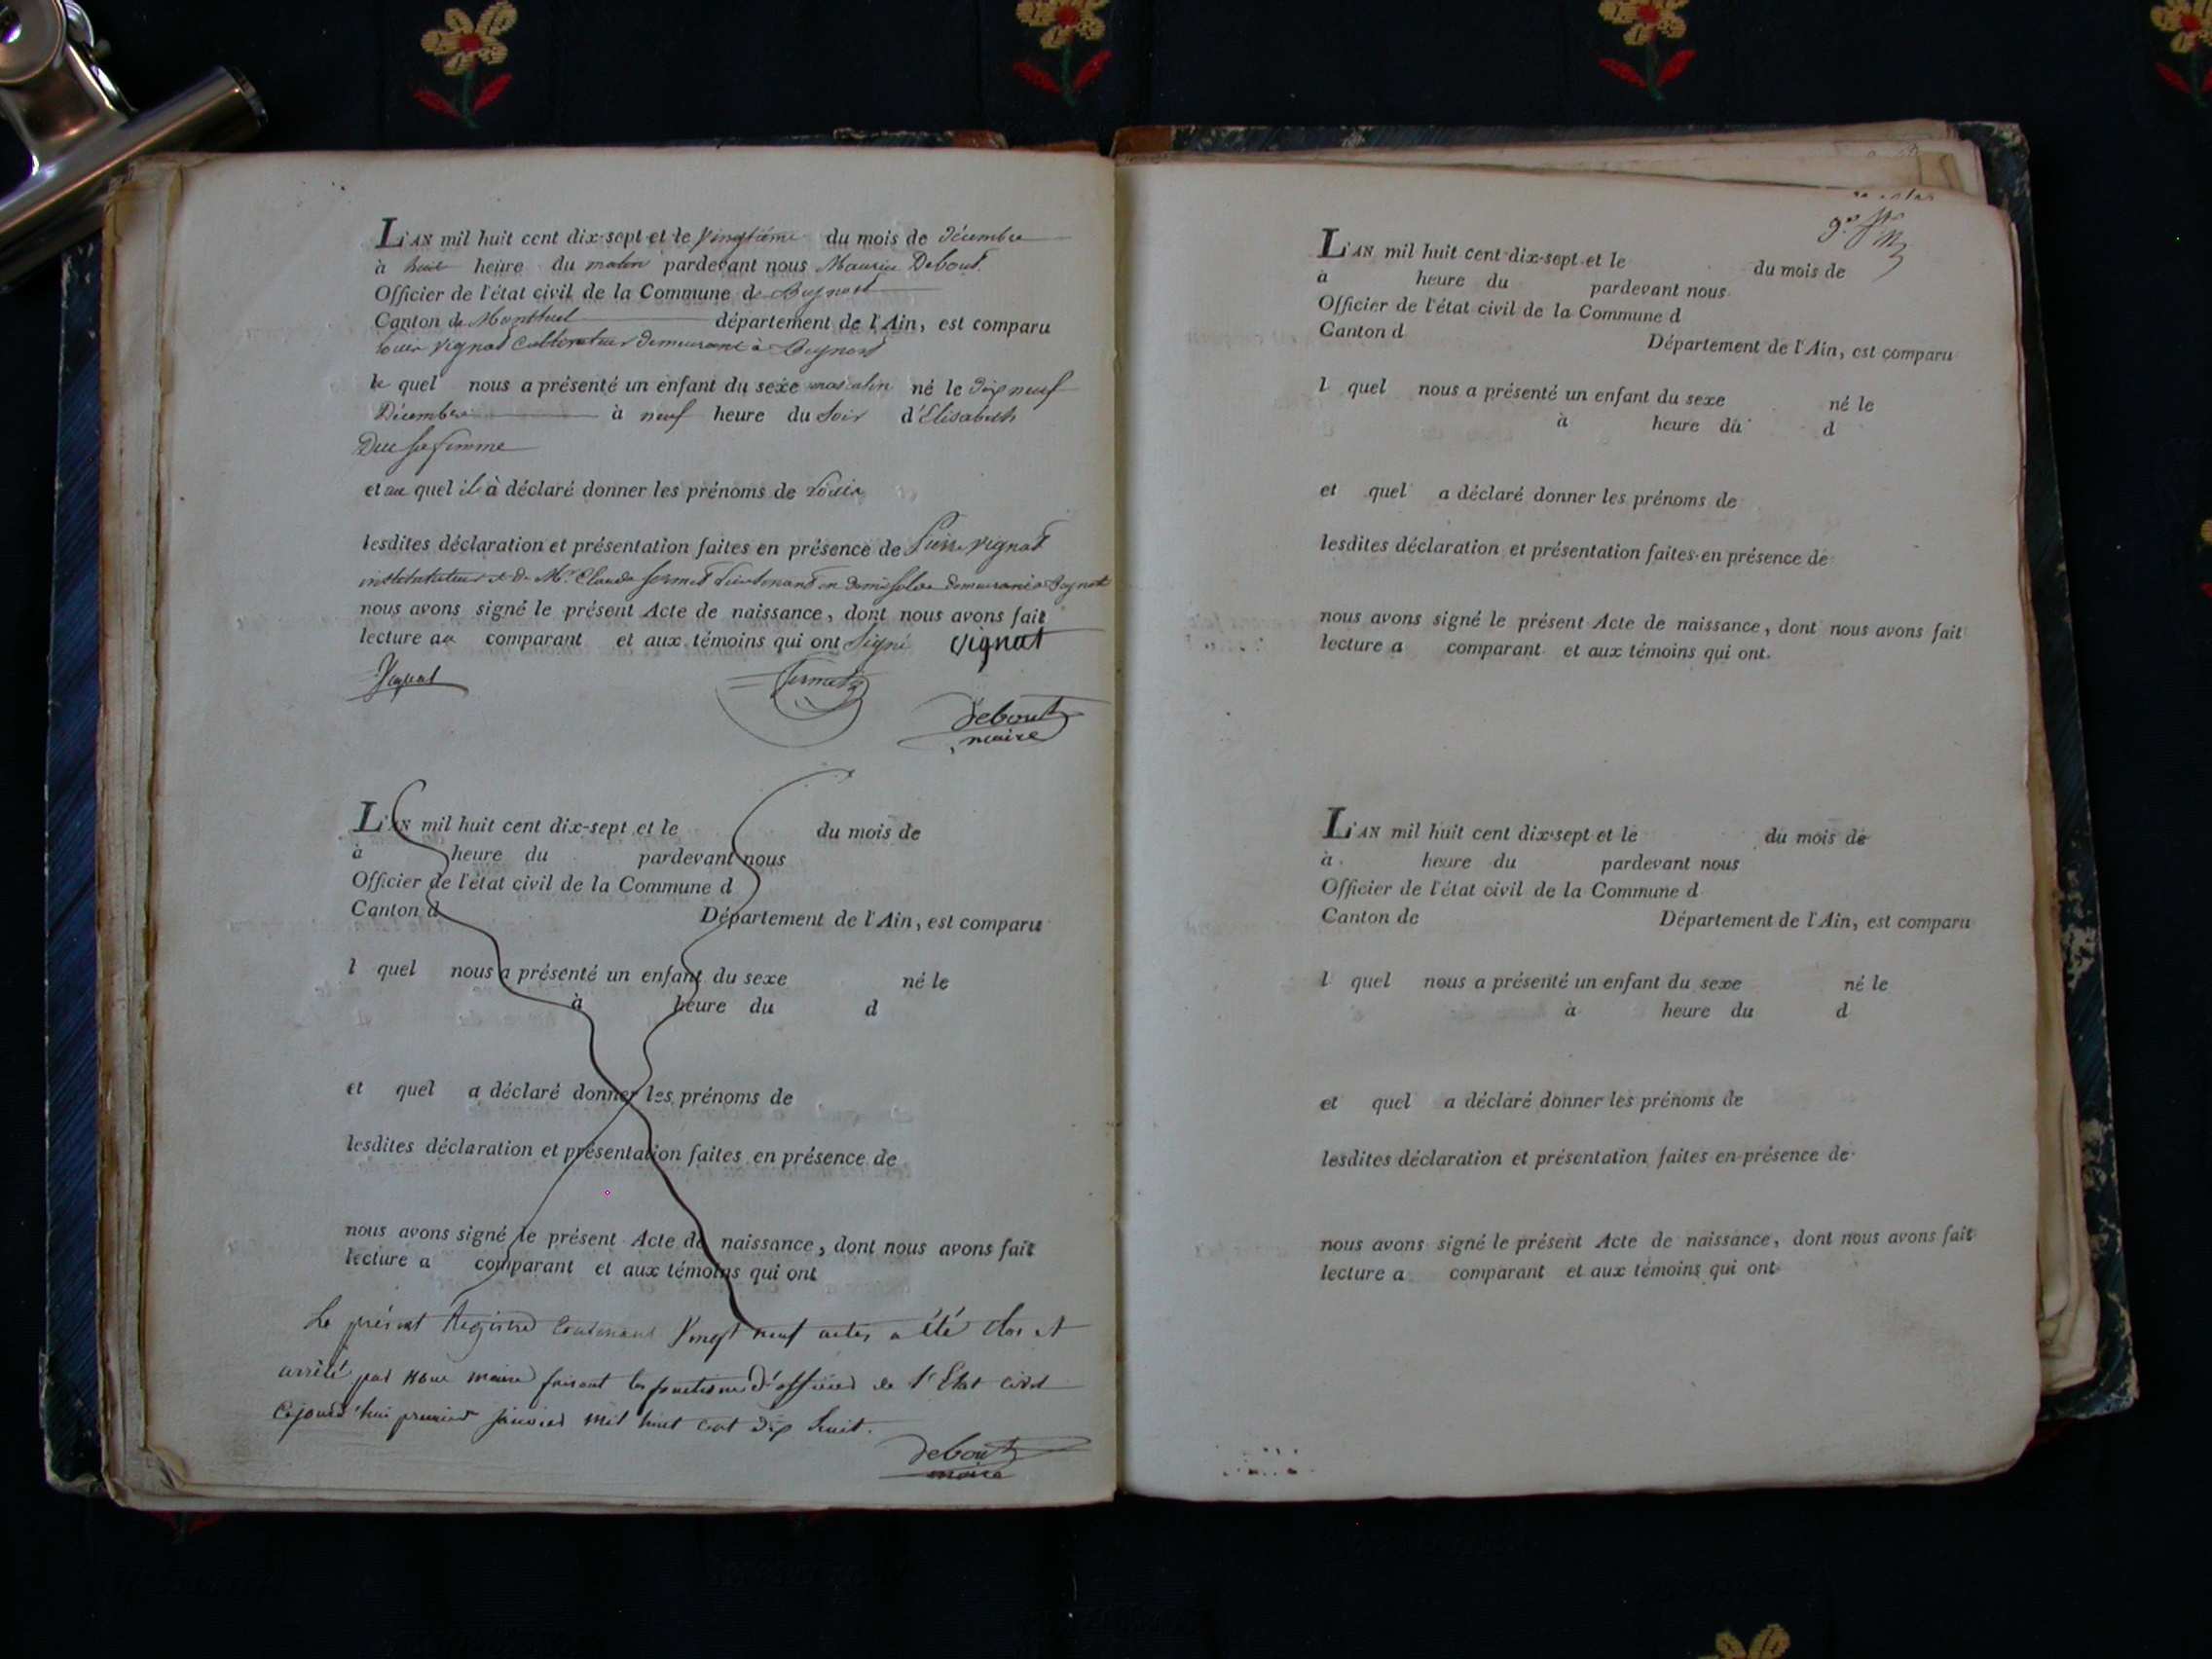 L'AN mil huit cent dix-sept et le vingtième du mois de Décembre
à huit heure du matin pardevant nous Maurice Debout
Officier de l'état civil de la Commune de Beynost
Canton de Montluel département de l'Ain, est comparu
Louis Vignat Cultivateur demeurant à Beynost
le quel nous a présenté un enfant du sexe masculin né le dix neuf
Décembre à neuf heure du Soir d'Elisabeth
Duc sa femme
et au quel il à déclaré donner les prénoms de Louis
lesdites déclaration et présentation faites en présence de Pierre Vignat
instituteur et de Mr Claude Lieutenant en demi solde demeurant à Beynost
nous avons signé le présent Acte de naissance, dont nous avons fait
lecture au comparant et aux témoins qui ont Signé Vignat
Vignat
Debout
maire
L'AN mil huit cent dix-sept et le du mois de
à heure du pardevant nous
Officier de l'état civil de la Commune d
Canton d Département de l'Ain, est comparu
l quel nous a présenté un enfant du sexe né le
à heure du d
et quel a déclaré donner les prénoms de
lesdites déclaration et présentation faites en présence de
nous avons signé le présent Acte de naissance, dont nous avons fait
lecture a comparant et aux témoins qui ont
Le présent Registre Contenant Vingt neuf actes a été clos et
arrêté par Nous maire faisant les fonctions d'officier de l'Etat civil
Cejourd'hui premier janvier mil huit cent dix huit.
Debout
maire
L'AN mil huit cent dix-sept et le du mois de
à heure du pardevant nous
Officier de l'état civil de la Commune d
Canton d Département de l'Ain, est comparu
l quel nous a présenté un enfant du sexe né le
à heure du d
et quel a déclaré donner les prénoms de
lesdites déclaration et présentation faites en présence de
nous avons signé le présent Acte de naissance, dont nous avons fait
lecture a comparant et aux témoins qui ont.
L'AN mil huit cent dix-sept et le du mois de
à heure du pardevant nous
Officier de l'état civil de la Commune d
Canton de Département de l'Ain, est comparu
l quel nous a présenté un enfant du sexe né le
à heure du d
et quel a déclaré donner les prénoms de
lesdites déclaration et présentation faites en présence de
nous avons signé le présent Acte de naissance, dont nous avons fait
lecture a comparant et aux témoins qui ont